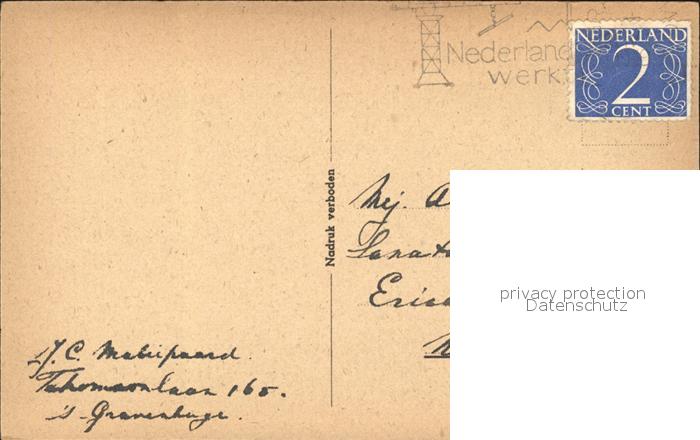 Nederland
werkt
NEDERLAND
2
CENT
Nadruk verboden
Mej. A
Sanat
Erica
privacy protection
Datenschutz
J.C.
Thomsonlaan 165.
's-Gravenhage.